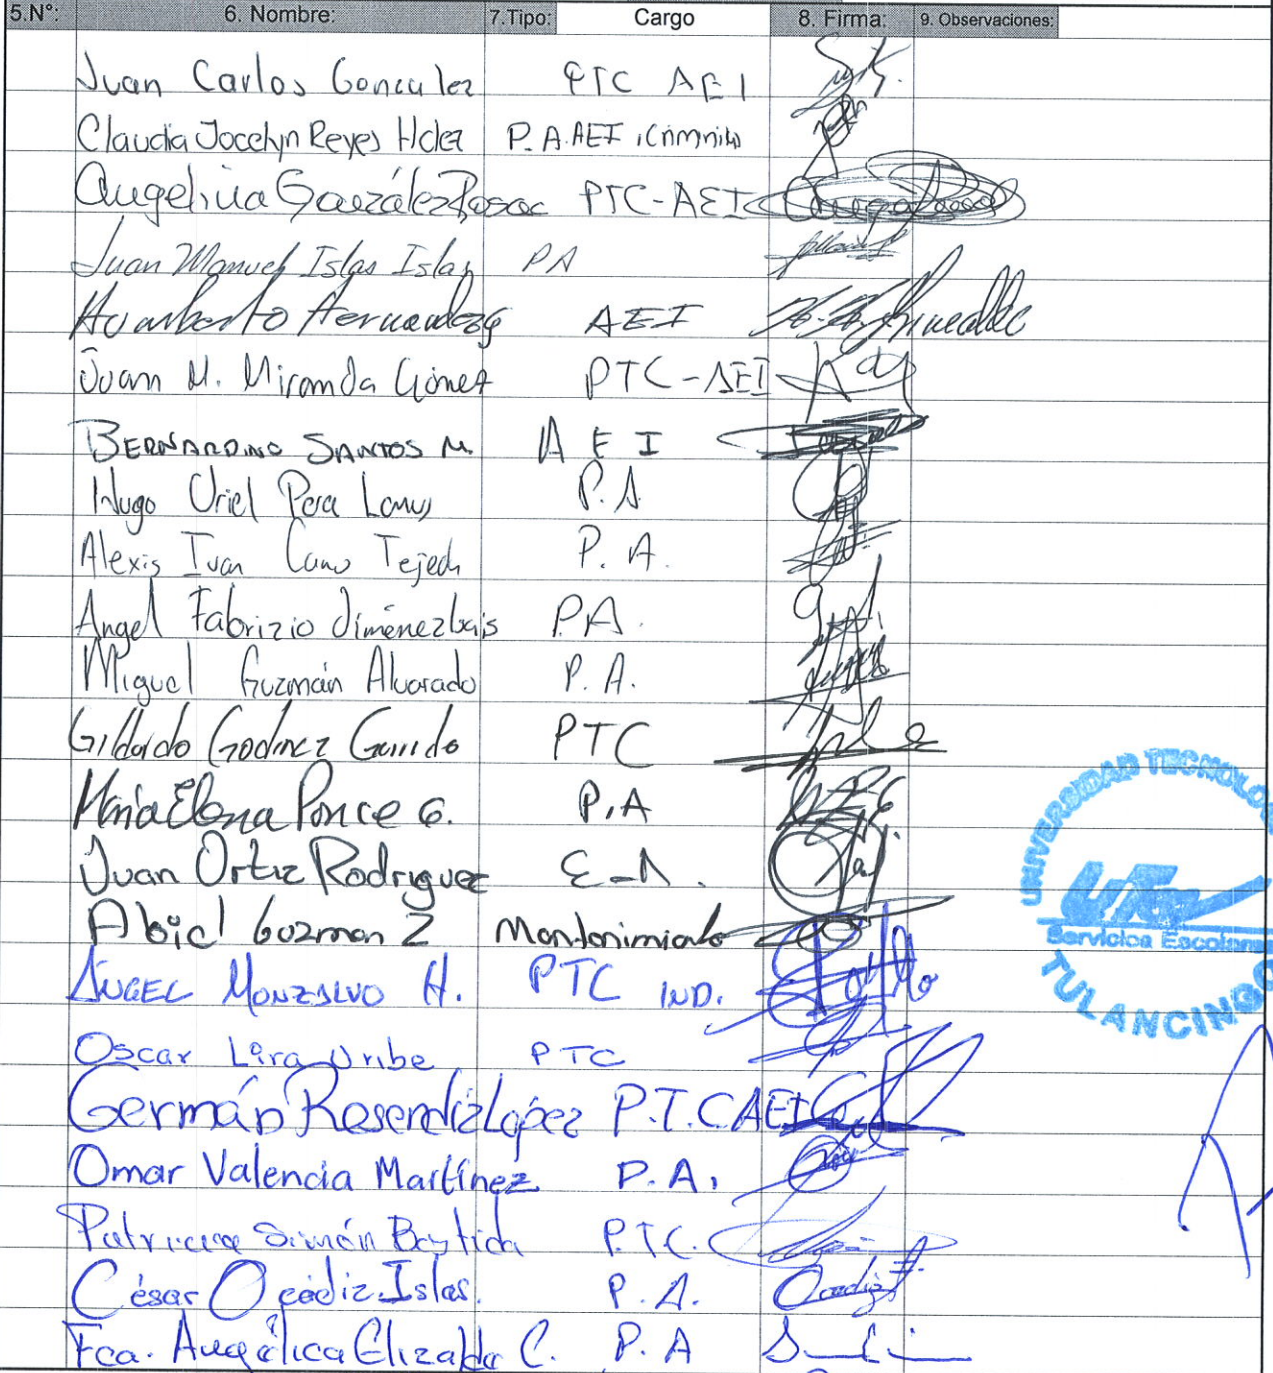 5.N°: 6. Nombre: 7.Tipo: Cargo 8. Firma: 9. Observaciones:
Juan Carlos Gonzalez PTC AEI
Claudia Jocelyn Reyes Hdez P.A. AEI
Angelina González Rosas PTC-AEI
Juan Manuel Islas Islas PA
Humberto Hernandez G AEI
Juan M. Miranda Gómez PTC-AEI
BERNARDINO SANTOS M. A E I
Hugo Uriel Pera P.A
Alexis Ivan Cano Tejeda P.A.
Angel Fabrizio Jiménez P.A.
Miguel Guzmán Alvarado P.A.
Gildardo Godinez Garrido PTC
María Elena Ponce G. P.A
Juan Ortiz Rodriguez E-A.
Abiel Guzman Z Mantenimiento
ÁNGEL MONZALVO H. PTC IND.
Oscar Lira Uribe PTC
Germán Resendiz López P.T.C AEI
Omar Valencia Martínez P.A.
Patricia Simón Bastida P.T.C.
César Ocádiz Islas. P.A. Ocadiz
Fca. Angélica Elizalde C. P.A
UNIVERSIDAD TECNOLO
UTec
Servicios Escolares
TULANCINGO